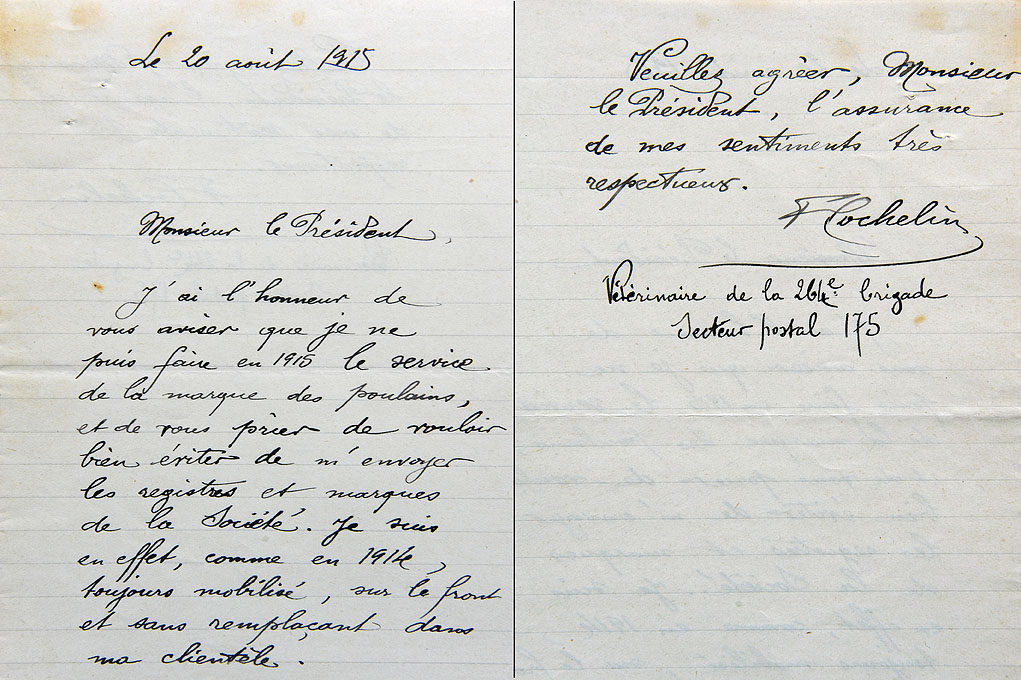 Le 20 août 1915
Monsieur le Président,
J'ai l'honneur de
vous aviser que je ne
puis faire en 1915 le service
de la marque des poulains,
et de vous prier de vouloir
bien éviter de m'envoyer
les registres et marques
de la Société. Je suis
en effet, comme en 1914,
toujours mobilisé, sur le front
et sans remplaçant dans
ma clientèle.
Veuillez agréer, Monsieur
le Président, l'assurance
de mes sentiments très
respectueux.
F Cochelin
Vétérinaire de la 264e brigade
Secteur postal 175